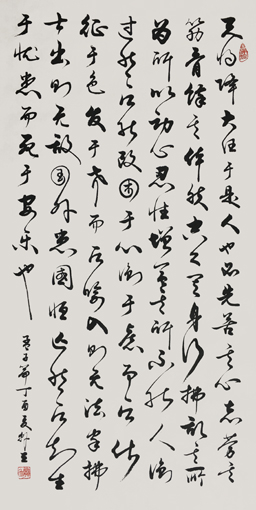 天将降大任于是人也必先苦其心志劳其
筋骨饿其体肤空乏其身行拂乱其所
为所以动心忍性增益其所不能人恒
过然后能改困于心衡于虑而后作
征于色发于声而后喻入则无法家拂
士出则无敌国外患国恒亡然后知生
于忧患而死于安乐也
孟子篇丁酉夏